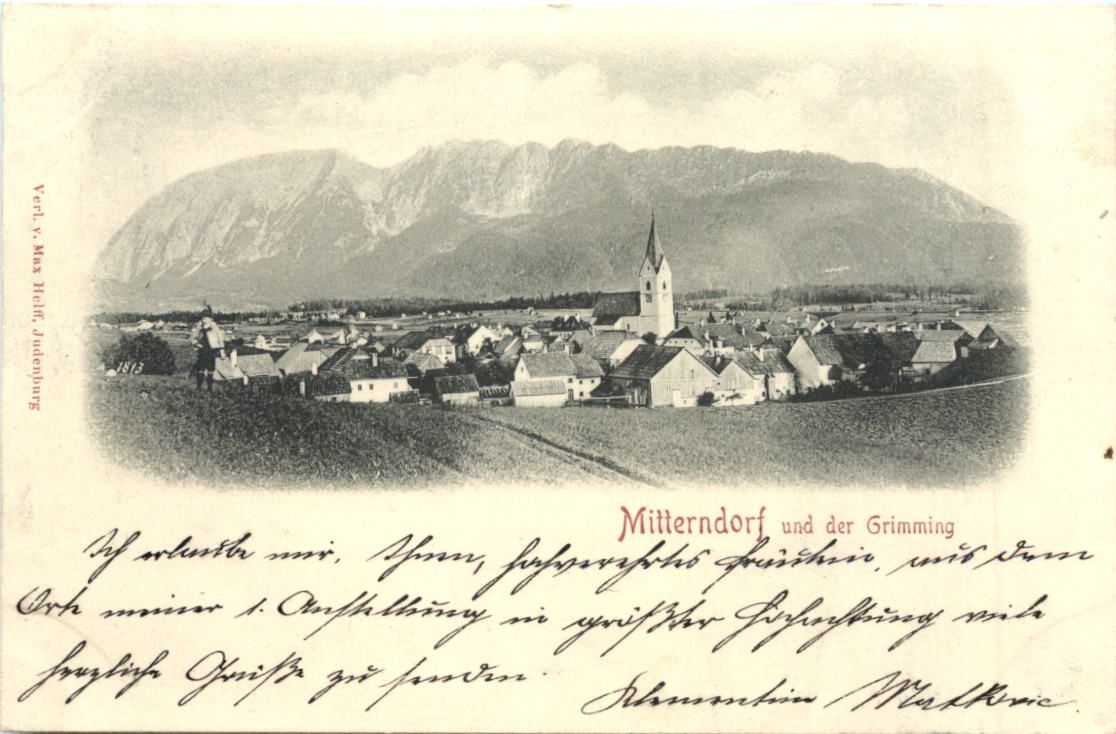 Verl. v. Max Helff, Judenburg
1813
Mitterndorf und der Grimming
Ich erlaube mir, Ihnen, hochverehrtes Fräulein, aus dem
Orte meiner 1. Anstellung in größter Hochachtung viele
herzliche Grüße zu senden.
Klementine Matkovic.